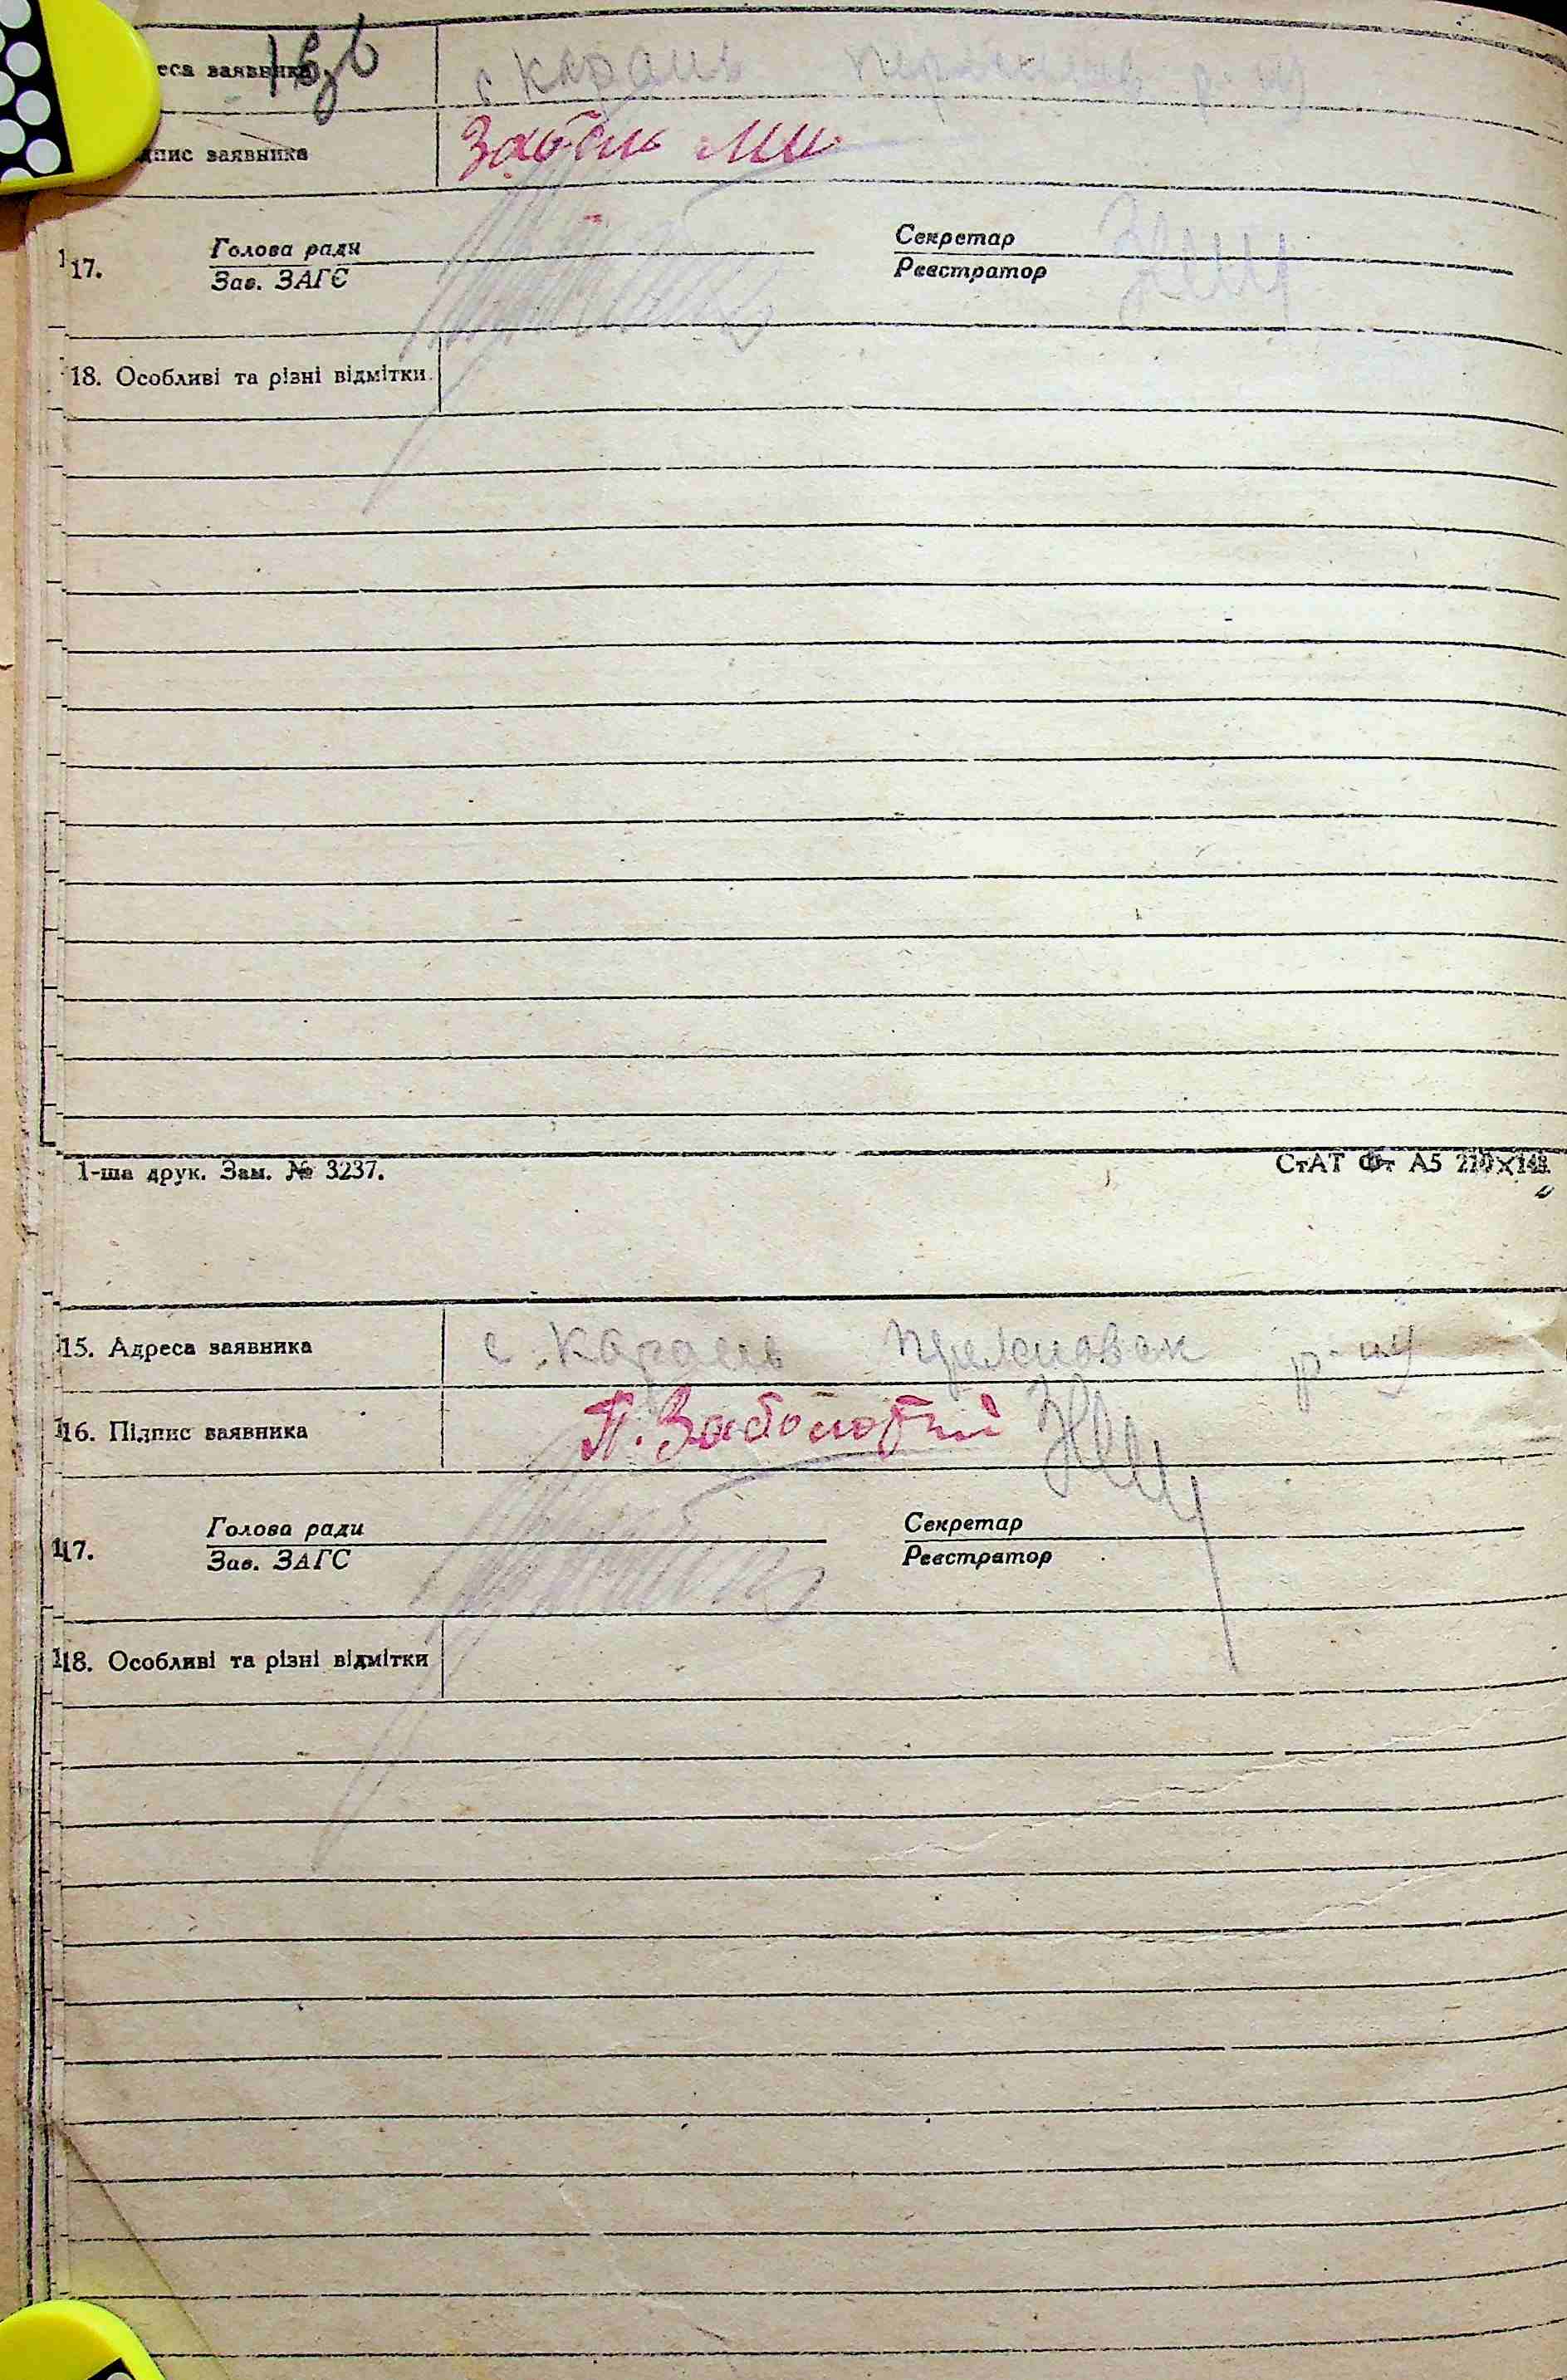 еса заявника с Карань р-ну
дпис заявника
17. Голова ради Секретар
Зав. ЗАГС Реєстратор
18. Особливі та різні відмітки
1-ша друк. Зам. № 3237. СтАТ Фт А5 210×148.
15. Адреса заявника с. Карань р-ну
16. Підпис заявника П. Заболотній
17. Голова ради Секретар
Зав. ЗАГС Реєстратор
18. Особливі та різні відмітки